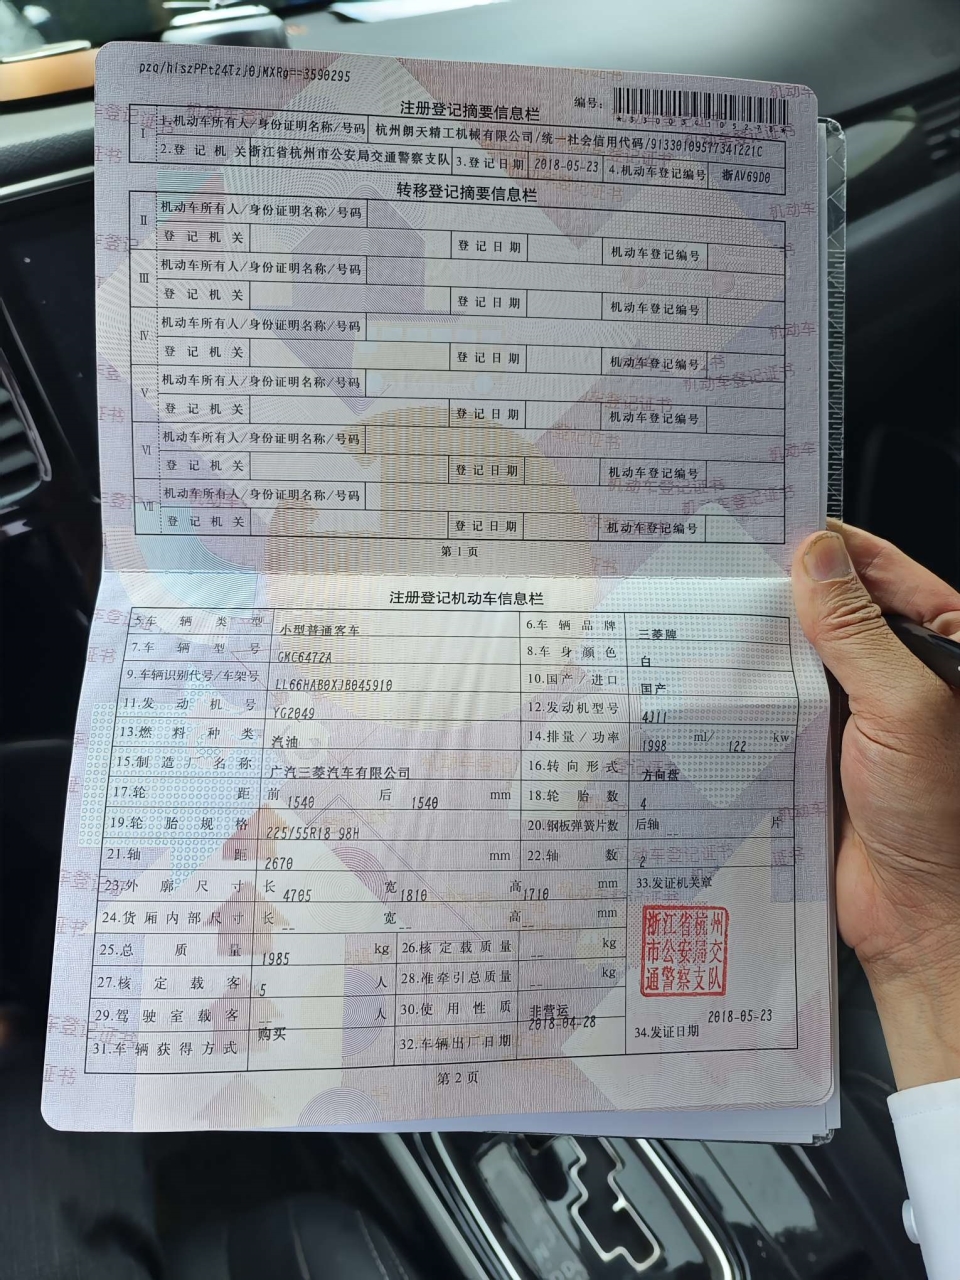 pzq/hiszPPt24Tzj0jMXRg==3590295
编号:
注册登记摘要信息栏
I 1.机动车所有人/身份证明名称/号码 杭州朗天精工机械有限公司/统一社会信用代码/91330109577341221C
2.登记机关 浙江省杭州市公安局交通警察支队 3.登记日期 2018-05-23 4.机动车登记编号 浙AV69D0
转移登记摘要信息栏
II 机动车所有人/身份证明名称/号码
登记机关 登记日期 机动车登记编号
III 机动车所有人/身份证明名称/号码
登记机关 登记日期 机动车登记编号
IV 机动车所有人/身份证明名称/号码
登记机关 登记日期 机动车登记编号
V 机动车所有人/身份证明名称/号码
登记机关 登记日期 机动车登记编号
VI 机动车所有人/身份证明名称/号码
登记机关 登记日期 机动车登记编号
VII 机动车所有人/身份证明名称/号码
登记机关 登记日期 机动车登记编号
第1页
注册登记机动车信息栏
5.车辆类型 小型普通客车 6.车辆品牌 三菱牌
7.车辆型号 GMC6472A 8.车身颜色 白
9.车辆识别代号/车架号 LL66HAB0XJB045910 10.国产/进口 国产
11.发动机号 YG2049 12.发动机型号 4J11
13.燃料种类 汽油 14.排量/功率 1998 ml/ 122 kw
15.制造厂名称 广汽三菱汽车有限公司 16.转向形式 方向盘
17.轮距 前 1540 后 1540 mm 18.轮胎数 4
19.轮胎规格 225/55R18 98H 20.钢板弹簧片数 后轴 -- 片
21.轴距 2670 mm 22.轴数 2
23.外廓尺寸 长 4705 宽 1810 高 1710 mm 33.发证机关章
24.货厢内部尺寸 长 -- 宽 -- 高 -- mm
浙江省杭州
市公安局交
通警察支队
25.总质量 1985 kg 26.核定载质量 -- kg
27.核定载客 5 人 28.准牵引总质量 -- kg
29.驾驶室载客 -- 人 30.使用性质 非营运
31.车辆获得方式 购买 32.车辆出厂日期 2018-04-28 34.发证日期 2018-05-23
第2页